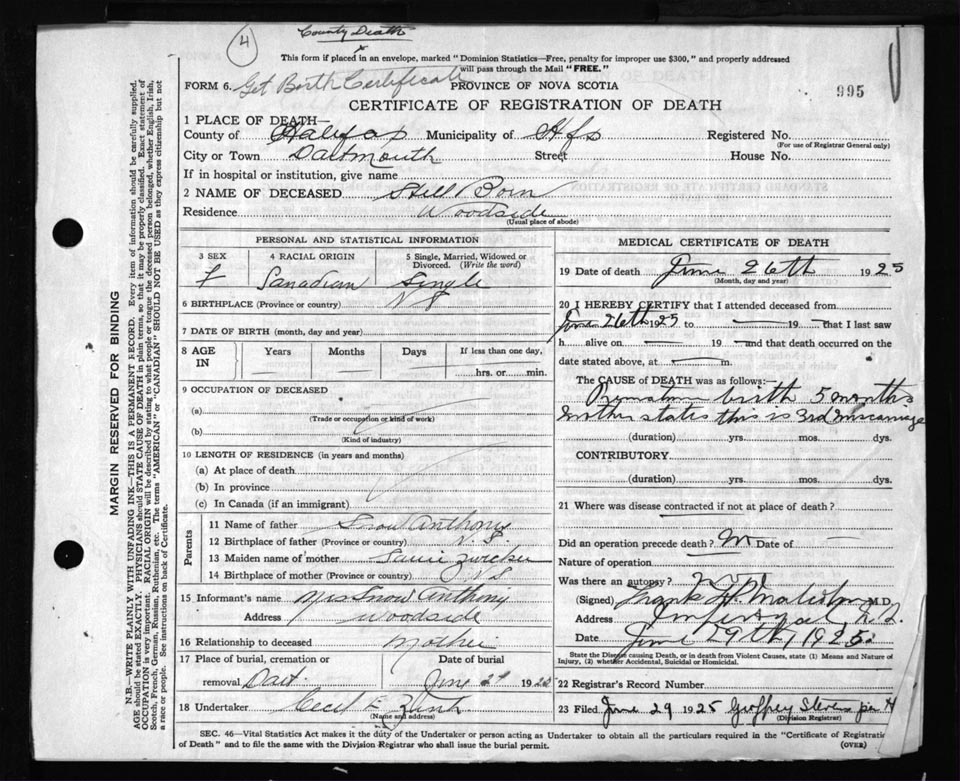 4
County Death
This form if placed in an envelope, marked "Dominion Statistics—Free, penalty for improper use $300," and properly addressed
will pass through the Mail "FREE."
FORM 6. Get Birth Certificate PROVINCE OF NOVA SCOTIA
995
CERTIFICATE OF REGISTRATION OF DEATH
1 PLACE OF DEATH—
County of Halifax Municipality of Hfx Registered No.
(For use of Registrar General only)
City or Town Dartmouth Street House No.
If in hospital or institution, give name
2 NAME OF DECEASED Still Born
Residence Woodside
(Usual place of abode)
PERSONAL AND STATISTICAL INFORMATION
3 SEX 4 RACIAL ORIGIN 5 Single, Married, Widowed or
Divorced. (Write the word)
F Canadian Single
6 BIRTHPLACE (Province or country) N S
7 DATE OF BIRTH (month, day and year)
8 AGE IN Years Months Days If less than one day,
hrs. or min.
9 OCCUPATION OF DECEASED
(a)
(Trade or occupation or kind of work)
(b)
(Kind of industry)
10 LENGTH OF RESIDENCE (in years and months)
(a) At place of death
(b) In province
(c) In Canada (if an immigrant)
Parents
11 Name of father Snow Anthony
12 Birthplace of father (Province or country) N.S.
13 Maiden name of mother Zwicker
14 Birthplace of mother (Province or country) N S
15 Informant's name Mrs Snow Anthony
Address Woodside
16 Relationship to deceased Mother
17 Place of burial, cremation or Date of burial
removal Dart. June 27 1925
18 Undertaker Cecil E. Zink
(Name and address)
MEDICAL CERTIFICATE OF DEATH
19 Date of death June 26th 1925
(Month, day and year)
20 I HEREBY CERTIFY that I attended deceased from
June 26th 1925 to — 19 — that I last saw
h alive on — 19 — and that death occurred on the
date stated above, at — m.
The CAUSE of DEATH was as follows:—
Premature birth 5 months
Mother states this is 3rd miscarriage
(duration) yrs. mos. dys.
CONTRIBUTORY.
(duration) yrs. mos. dys.
21 Where was disease contracted if not at place of death?
Did an operation precede death? Date of —
Nature of operation
Was there an autopsy? no
(Signed) Frank Malcolm M.D.
Address Imperoyal N.S.
Date June 29th, 1925
State the Disease causing Death, or in death from Violent Causes, state (1) Means and Nature of
Injury, (2) whether Accidental, Suicidal or Homicidal.
22 Registrar's Record Number
23 Filed June 29 1925 Geoffrey Stevens
(Division Registrar)
SEC. 46—Vital Statistics Act makes it the duty of the Undertaker or person acting as Undertaker to obtain all the particulars required in the "Certificate of Registration
of Death" and to file the same with the Division Registrar who shall issue the burial permit. (OVER)
MARGIN RESERVED FOR BINDING
N.B.—WRITE PLAINLY WITH UNFADING INK—THIS IS A PERMANENT RECORD. Every item of information should be carefully supplied.
AGE should be stated EXACTLY. PHYSICIANS should STATE CAUSE OF DEATH in plain terms, so that it may be properly classified. Exact statement of
OCCUPATION is very important. RACIAL ORIGIN will be described by stating to what people or tongue the deceased person belonged, whether English, Irish,
Scotch, French, German, Russian, Ruthenian, etc. The terms "AMERICAN" or "CANADIAN" SHOULD NOT BE USED as they express citizenship but not
a race or people. See instructions on back of Certificate.